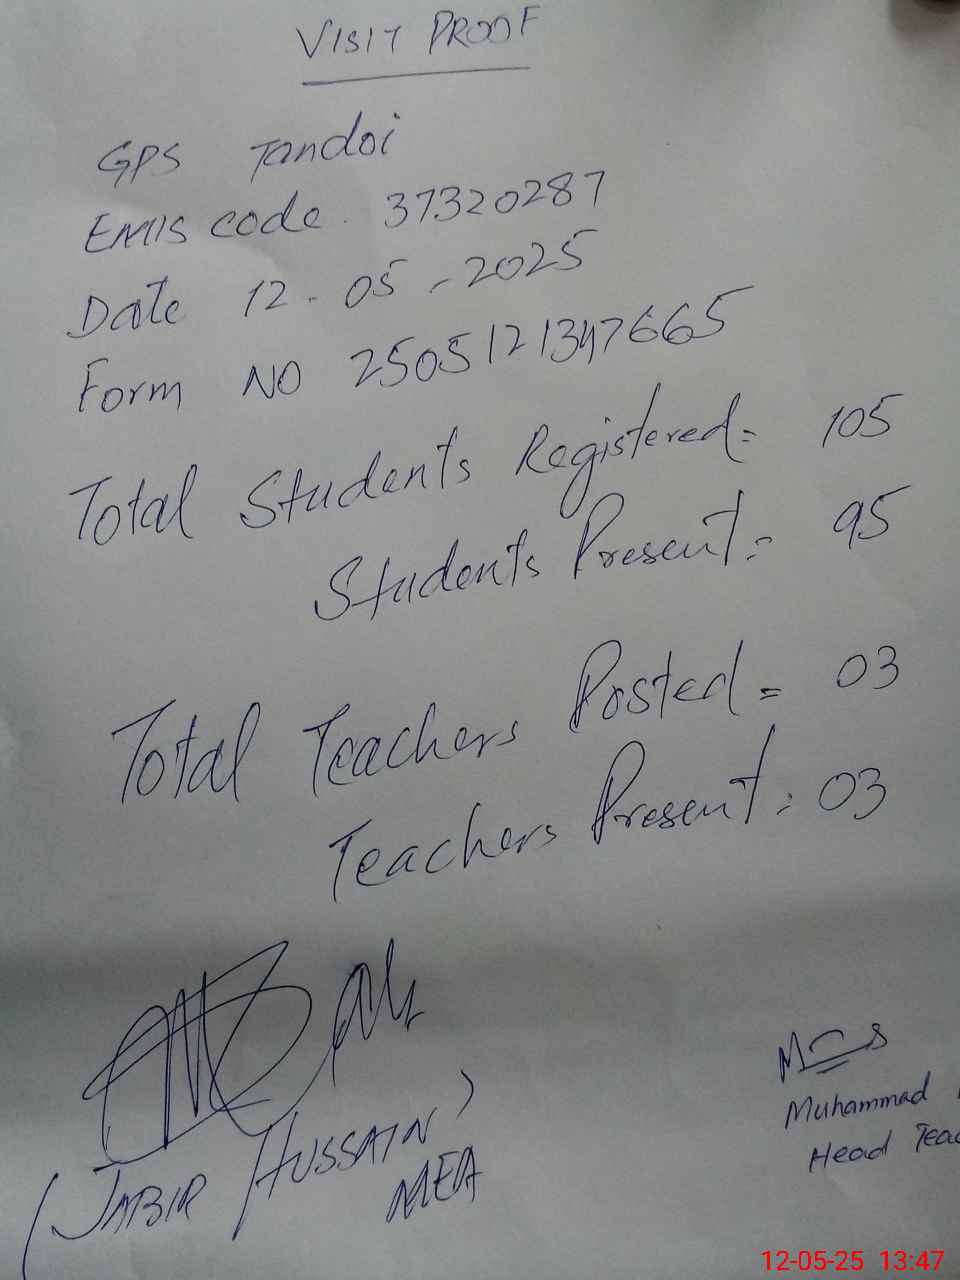 VISIT PROOF
GPS Tandoi
EMIS code. 37320287
Date 12-05-2025
Form NO 2505121347665
Total Students Registered = 105
Students Present = 95
Total Teachers Posted = 03
Teachers Present = 03
(JABIR HUSSAIN)
MEA
Muhammad
Head Teac
12-05-25 13:47